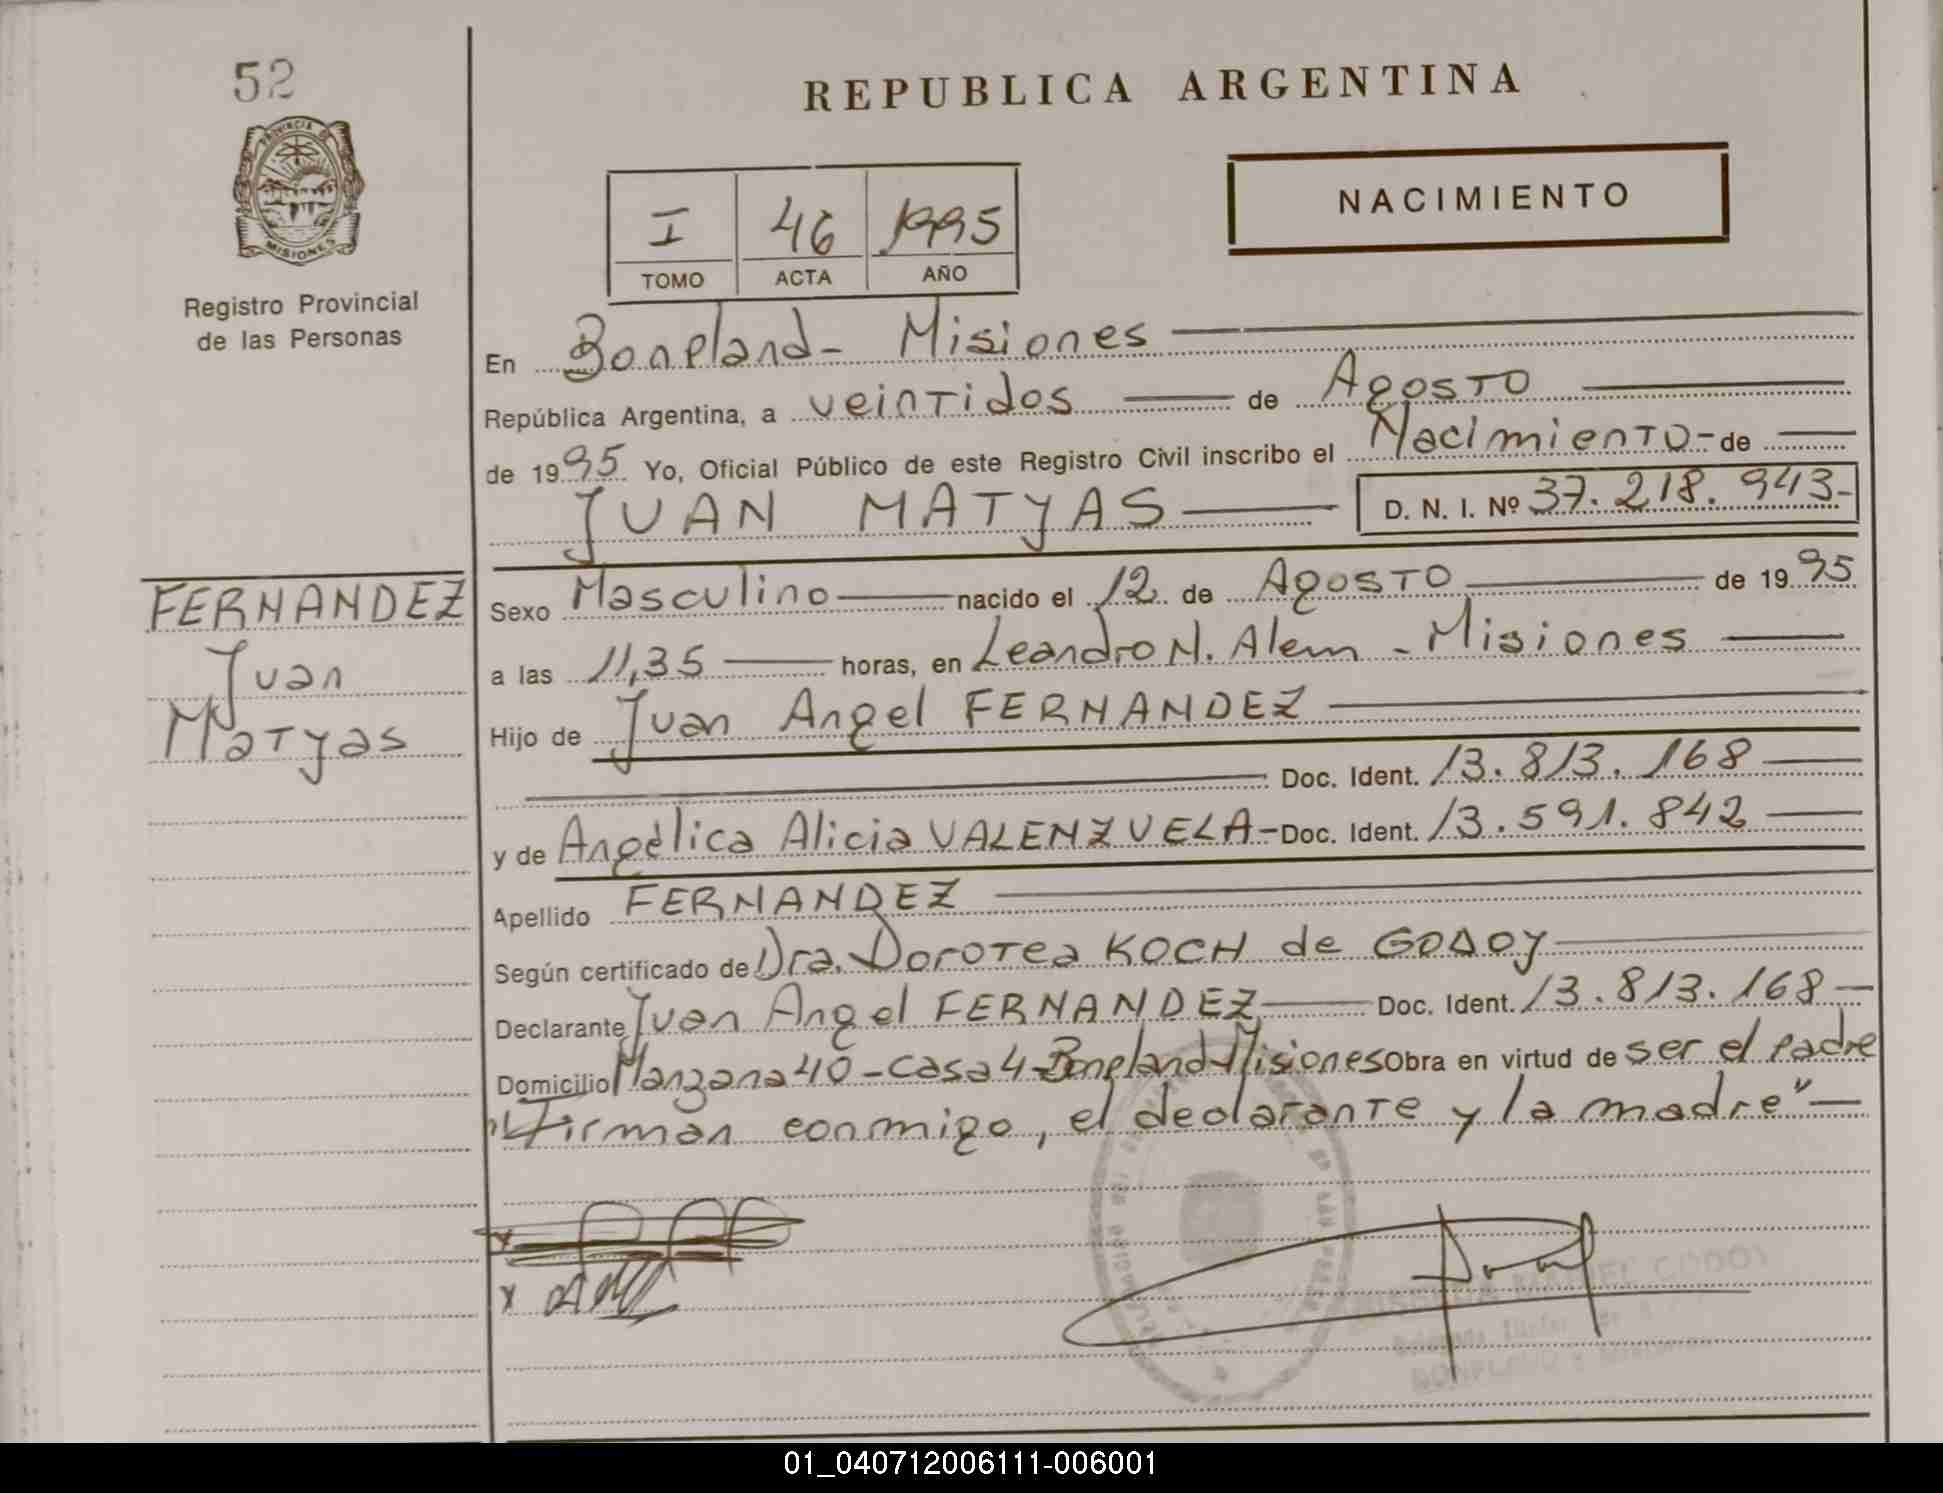 52
REPUBLICA ARGENTINA
PROVINCIA DE
MISIONES
Registro Provincial
de las Personas
I 46 1995
TOMO ACTA AÑO
NACIMIENTO
En Bonpland - Misiones
República Argentina, a veintidos de Agosto
de 1995 Yo, Oficial Público de este Registro Civil inscribo el Nacimiento - de
JUAN MATYAS D. N. I. Nº 37.218.943-
FERNANDEZ
Juan
Matyas
Sexo Masculino nacido el 12 de Agosto de 1995
a las 11,35 horas, en Leandro N. Alem - Misiones
Hijo de Juan Angel FERNANDEZ
Doc. Ident. 13.813.168
y de Angélica Alicia VALENZUELA - Doc. Ident. 13.591.842
Apellido FERNANDEZ
Según certificado de Dra. Dorotea KOCH de GODOY
Declarante Juan Angel FERNANDEZ Doc. Ident. 13.813.168
Domicilio Manzana 40 - Casa 4 - Bonpland - Misiones Obra en virtud de ser el padre
"Firman conmigo, el declarante y la madre"
x
x
GODOY
BONPLAND - Misiones
01_040712006111-006001